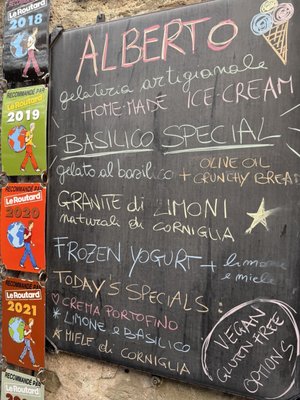 RECOMMANDÉ PAR
Le Routard
2018
RECOMMANDÉ PAR
Le Routard
2019
RECOMMANDÉ PAR
Le Routard
2020
RECOMMANDÉ PAR
Le Routard
2021
RECOMMANDÉ PAR
Le Routard
ALBERTO
gelateria artigianale
HOME-MADE ICE-CREAM
BASILICO SPECIAL
gelato al basilico + OLIVE OIL
CRUNCHY BREA
GRANITE di LIMONI
naturali di CORNIGLIA
FROZEN YOGURT + limone
e miele
TODAY'S SPECIALS:
CREMA PORTOFINO
LIMONE e BASILICO
MIELE di CORNIGLIA
VEGAN
GLUTEN FREE
OPTIONS